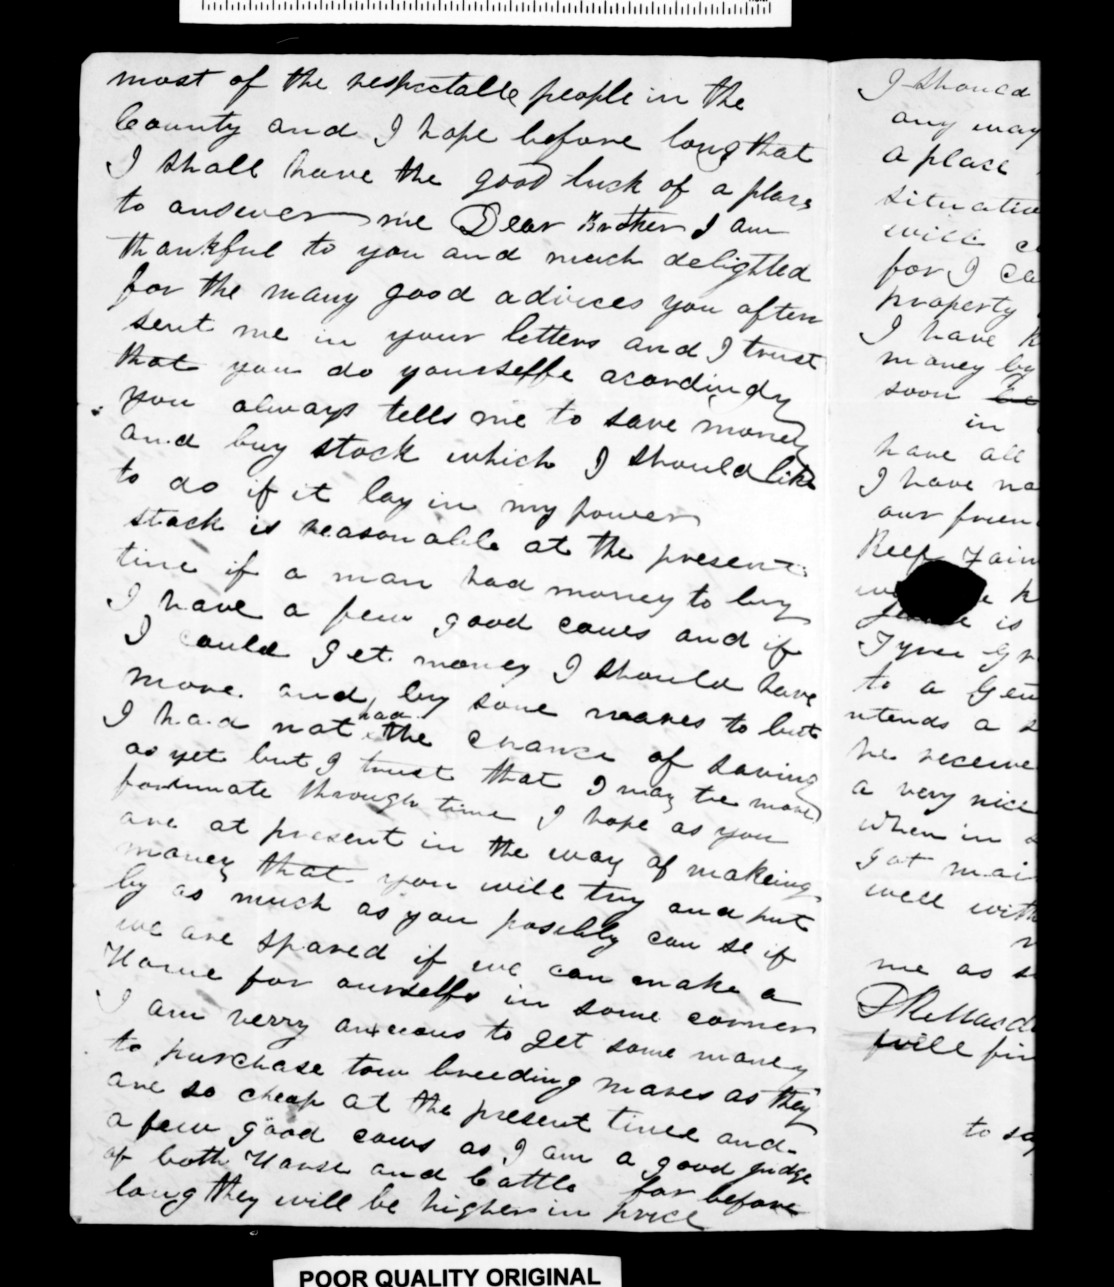 most of the respectable people in the
County and I hope before long that
I shall have the good luck of a place
to answer me Dear Brother I am
thankful to you and much delighted
for the many good advices you often
sent me in your letters and I trust
that you do yourselffe acordindy
you always tells me to save money
and buy stock which I should like
to do if it lay in my power
stock is reasonable at the present
time if a man had money to buy
I have a few good cows and if
I could get money I should have
more and buy some mares to but
I had not had the chance of saving
as yet but I trust that I may be more
fortunate through time I hope as you
are at present in the way of makeing
money that you will try and put
by as much as you possibly can se if
we are spared if we can make a
Home for ourselfs in some corner
I am verry anxious to get some money
to purchase tow breeding mares as they
are so cheap at the present time and
a few good cows as I am a good judge
of both Horse and Cattle for before
long they will be higher in price
I should
any way
a place
situatio
will
for I ca
property
I have
money by
soon
in
have all
I have no
our frien
is
to a Gen
ntends a
he receive
a very nice
when in
got mai
well with
me as
will fin
to say
POOR QUALITY ORIGINAL